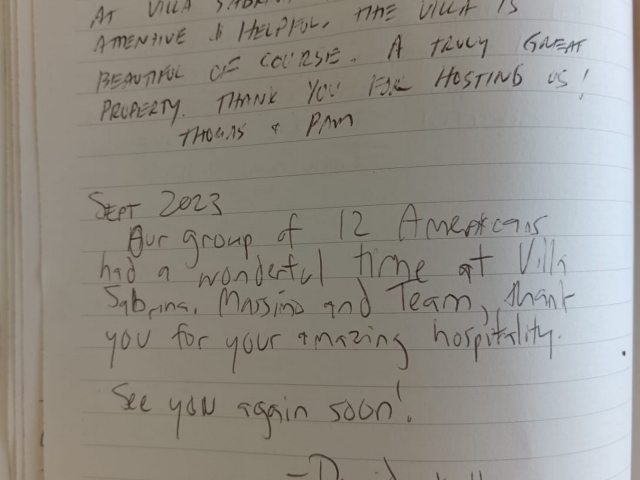 AT VILLA
ATTENTIVE & HELPFUL. THE VILLA IS
BEAUTIFUL OF COURSE. A TRULY GREAT
PROPERTY. THANK YOU FOR HOSTING US!
THOMAS & PAM
SEPT 2023
Our group of 12 Americans
had a wonderful time at Villa
Sabrina. Massimo and Team, thank
you for your amazing hospitality.
See you again soon!